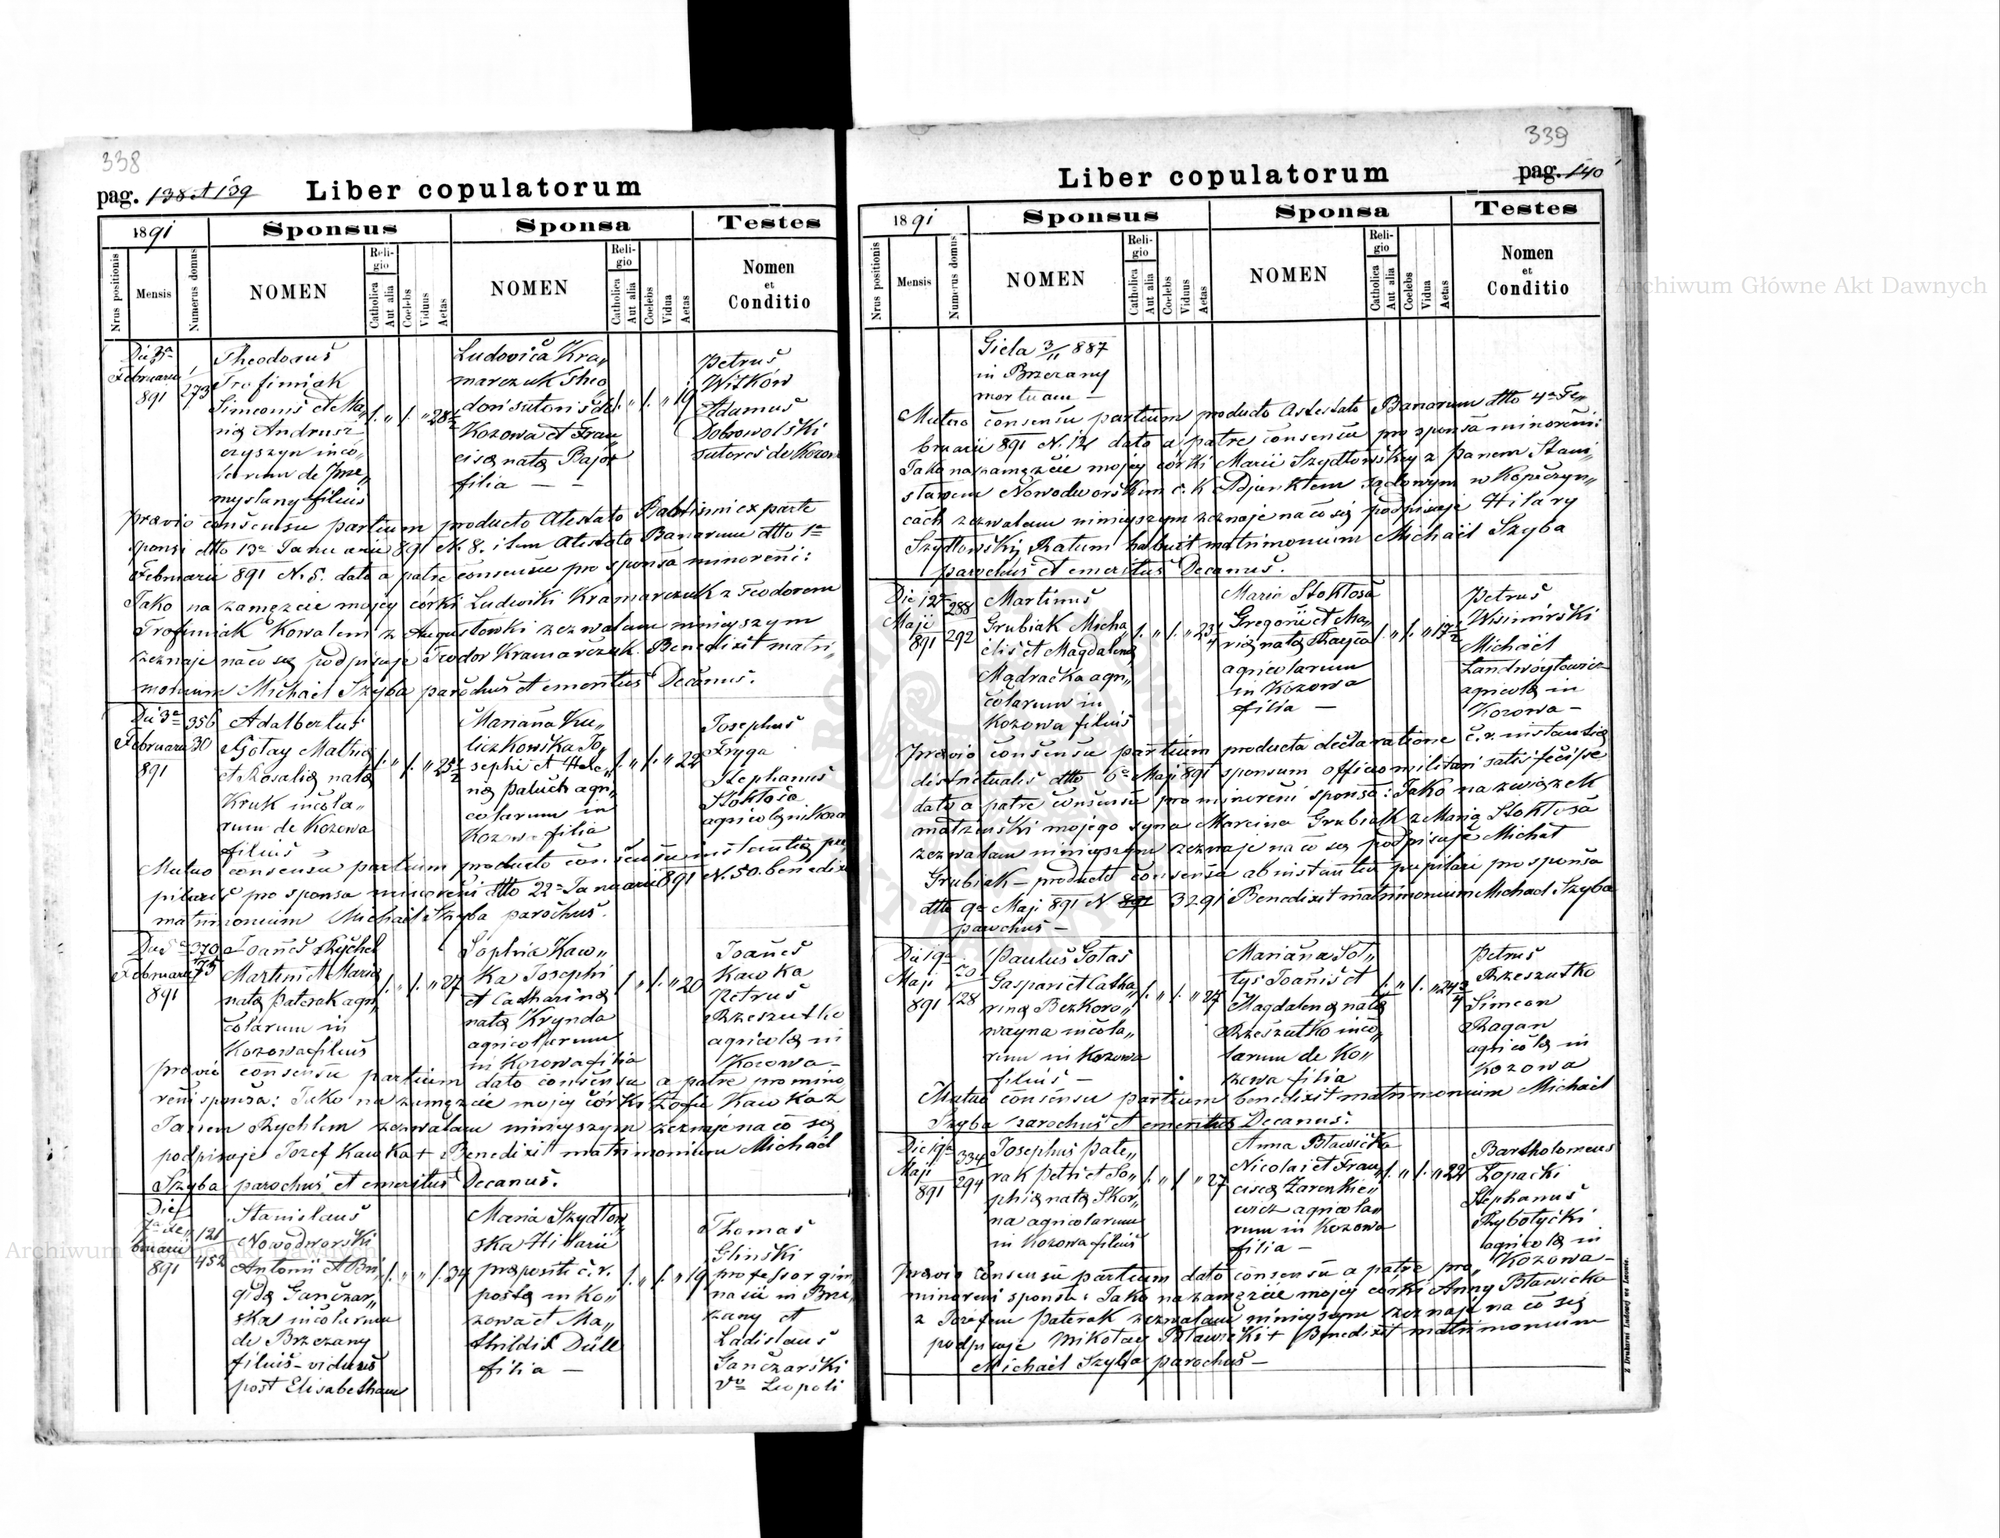 338
pag. 138 et 139 Liber copulatorum
1891 Sponsus Sponsa Testes
Nrus positionis Mensis Numerus domus NOMEN Religio Catholica Aut alia Coelebs Viduus Aetas NOMEN Religio Catholica Aut alia Coelebs Vidua Aetas Nomen et Conditio
Die 3a
Februarii
891
1
273
Theodorus
Trofimiak
Simeonis et Ma„
riæ Andrusz
czyszyn inco„
larum de Prze
myslany filius
28½
Ludovica Kra„
marczuk Theo
dori sutoris de
Kozowa et Fran
ciscæ natæ Bajor
filia — —
19
Petrus
Witków
Adamus
Dobrowolski
sutores de Kozow
prævio consensu partium producto Atestato Babtismi ex parte
sponsi dtto 13a Januarii 891 N. 8. item Atestato Banorum dtto 1a
Februarii 891 N. 5. dato a patre consensu pro sponsa minoreni:
Jako na zamęzcie mojej córki Ludwiki Kramarczuk z Teodorem
Trofimiak Kowalem z Augustowki zezwalam niniejszym
zeznaje na co się podpisuje Teodor Kramarczuk. Benedixit matri„
monium Michael Szyba parochus et emeritus Decanus.
Die 3a
Februarii
891
356
30
Adalbertus
Gotay Mathiæ
et Rosaliæ natæ
Kruk incola„
rum de Kozowa
filius
25½
Mariana Ku„
liczkowska Jo„
sephi et Hele„
næ Paluch agri„
colarum in
Kozowa filia
22
Josephus
Fryga
Stephanus
Stoktosa
agricolæ in Kozow
Mutuo consensu partium producto consensu instantiæ pu
pilaris pro sponsa minoreni dtto 22a Januarii 891 N. 50. benedixit
matrimonium Michael Szyba parochus.
Februarii
891
370
75
Joanes Rychel
Martini et Mariæ
natæ Paterak agri„
colarum in
Kozowa filius
27
Sophia Kaw„
ka Josephi
et Catharinæ
natæ Krynda
agricolarum
in Kozowa filia
20
Joanes
Kawka
Petrus
Rzeszutko
agricolæ in
Kozowa —
prævio consensu partium dato consensu a patre pro mino
reni sponsa: Jako na zamęzcie mojej córki Zofii Kawka z
Janem Rychlem zezwalam niniejszym zeznaje na co się
podpisuje Jozef Kawka + Benedixit matrimonium Michael
Szyba parochus et emeritus Decanus.
Die
7a Fe„
bruarii
891
121
452
Stanislaus
Nowodworski
Antonii et Bri„
gidæ Ganczar„
ska incolarum
de Brzezany
filius – viduus
post Elisabetham
34
Maria Szydtow„
ska Hilarii
præpositi c. r.
postæ in Ko„
zowa et Ma„
thildis Düll
filia —
19
Thomas
Glinski
professor gim„
nasii in Brze„
zany et
Ladislaus
Ganczarski
Leopoli
339
pag. 140
Liber copulatorum
1891 Sponsus Sponsa Testes
Nrus positionis Mensis Numerus domus NOMEN Religio Catholica Aut alia Coelebs Viduus Aetas NOMEN Religio Catholica Aut alia Coelebs Vidua Aetas Nomen et Conditio
Giela 3/11 887
in Brzezany
mortuam —
Mutuo consensu partium producto Astestato Banorum dtto 4a Fe„
bruarii 891 N. 12 dato a patre consensu pro sponsa minoreni:
Jako na zamęzcie mojej córki Marii Szydtowskiej z panem Stani„
stawem Nowodworskim c. k Adjunktem sądowym w Kopyczyn„
cach zezwalam niniejszym zeznaje na co się podpisuje Hilary
Szydtowski. Ratum habuit matrimonium Michael Szyba
parochus et emeritus Decanus.
Die 12a
Maji
891
288
292
Martinus
Grubiak Micha„
elis et Magdalenæ
Mądraćka agri„
colarum in
Kozowa filius
23¼
Maria Stoktosa
Gregorii et Ma„
riæ natæ
agricolarum
in Kozowa
filia —
17½
Petrus
Wisnirski
Michael
Landwojtowicz
agricolæ in
Kozowa —
Prævio consensu partium producta declaratione c. r. instantiæ
districtualis dtto 6a Maji 891 sponsum officio militari satisfecisse
dato a patre consensu pro minoreni sponso: Jako na związek
matzenski mojego syna Marcina Grubiak z Marią Stoktosa
zezwalam niniejszym zeznaje na co się podpisuje Michat
Grubiak — producto consensu ab instantia pupilari pro sponsa
dtto 9a Maji 891 N 891 3291 Benedixit matrimonium Michael Szyba
parochus —
Die 19a
Maji
891
70
128
Paulus Gotas
Gaspari et Catha„
rinæ Bezkoro„
wayna incola„
rum in Kozowa
filius —
27
Mariana Sot„
tys Joanis et
Magdalenæ natæ
Rzeszutko inco„
larum de Ko„
zowa filia
24¾
Petrus
Rzeszutko
Simeon
Ragan
agricolæ in
Kozowa
Mutuo consensu partium benedixit matrimonium Michael
Szyba parochus et emeritus Decanus.
Die 19a
Maji
891
334
294
Josephus Pate„
rak Petri et So„
phiæ natæ Skor„
na agricolarum
in Kozowa filius
27
Anna Btawicka
Nicolai et Fran„
ciscæ Zarenkie„
wicz agricola„
rum in Kozowa
filia —
22
Bartholomeus
Łopacki
Stephanus
Rybotycki
agricolæ in
Kozowa —
Prævio consensu partium dato consensu a patre pro„
minoreni sponsa: Jako na zamęzcie mojej córki Anny Btawicka
z Jozefem Paterak zezwalam niniejszym zeznaje na co się
podpisuje Mikotay Btawicki + Benedixit matrimonium
Michael Szyba parochus —
Z Drukarni Ludowej we Lwowie.
Archiwum Główne Akt Dawnych
Archiwum Główne Akt Dawnych